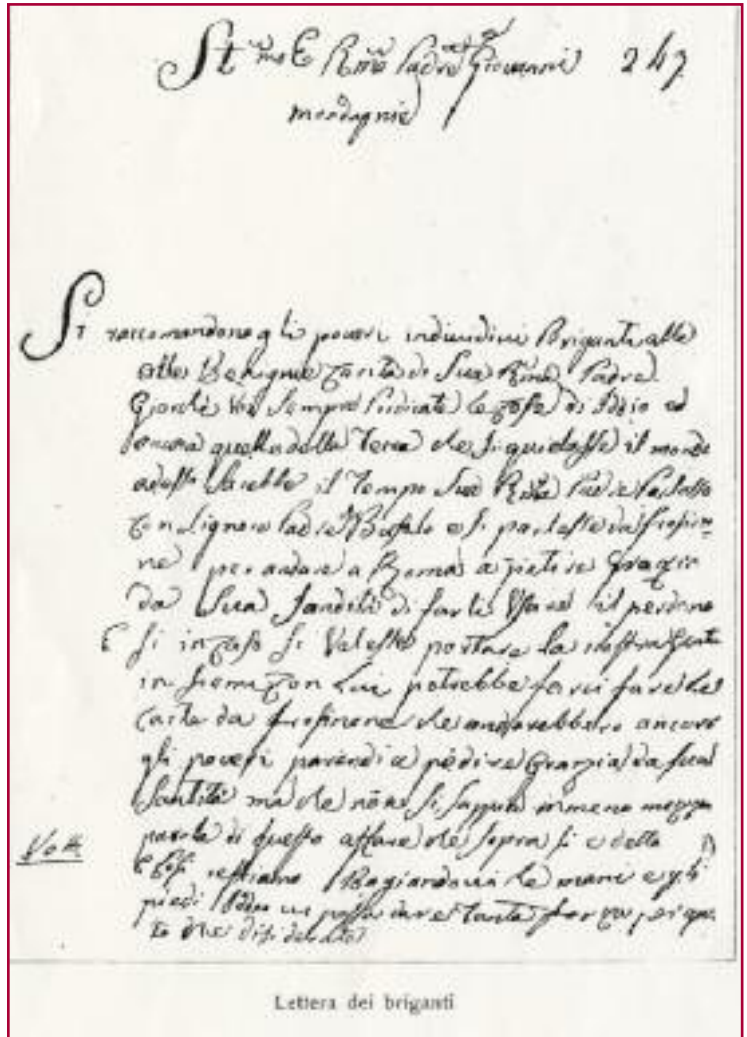 St.mo E R.mo Padre Giovanni 247
merdagnie
Si raccomandono gli poveri individui Briganti alle
otte Benignie Carità di Sua R.ma Padre
Giorchè Voi Sempre Predicate le Cose di Iddio ed
ancora quella della Terra che si guidasse il mondo
adesso Sarebbe il Tempo Sua R.ma Padre Parlasse
Con Signore Padre Bufalo e si partesse da Frosino=
ne per andare a Roma a pietire Grazia
da Sua Santità di farli Usare il perdono
E si in Caso si Volesse portare la nostra Gente
insieme Con Lui potrebbe farci fare le
Carte da Frosinone che anderebbero ancora
gli poveri parendi a pedire Grazia da sua
Santità ma che non si sappia in meno mezza
parola di questo affare che sopra si e detto
E Cosi restiamo Bagiandovi le mani e gli
piedi Iddio vi possa dare tanta forza per que
to che disiderato
Volt.
Lettera dei briganti